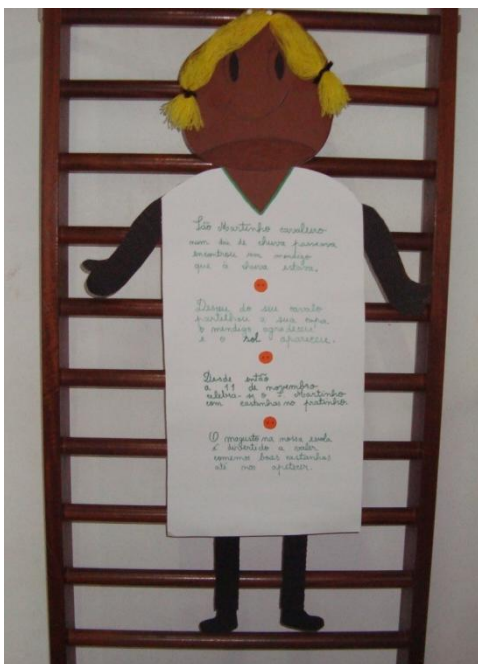 São Martinho cavaleiro
num dia de chuva passava
encontrou um mendigo
que à chuva estava.
Desceu do seu cavalo
partilhou a sua capa
o mendigo agradeceu
e o sol apareceu.
Desde então
a 11 de novembro
celebra-se o S. Martinho
com castanhas no pratinho
O magusto na nossa escola
é divertido a valer
comemos boas castanhas
até nos apetecer.